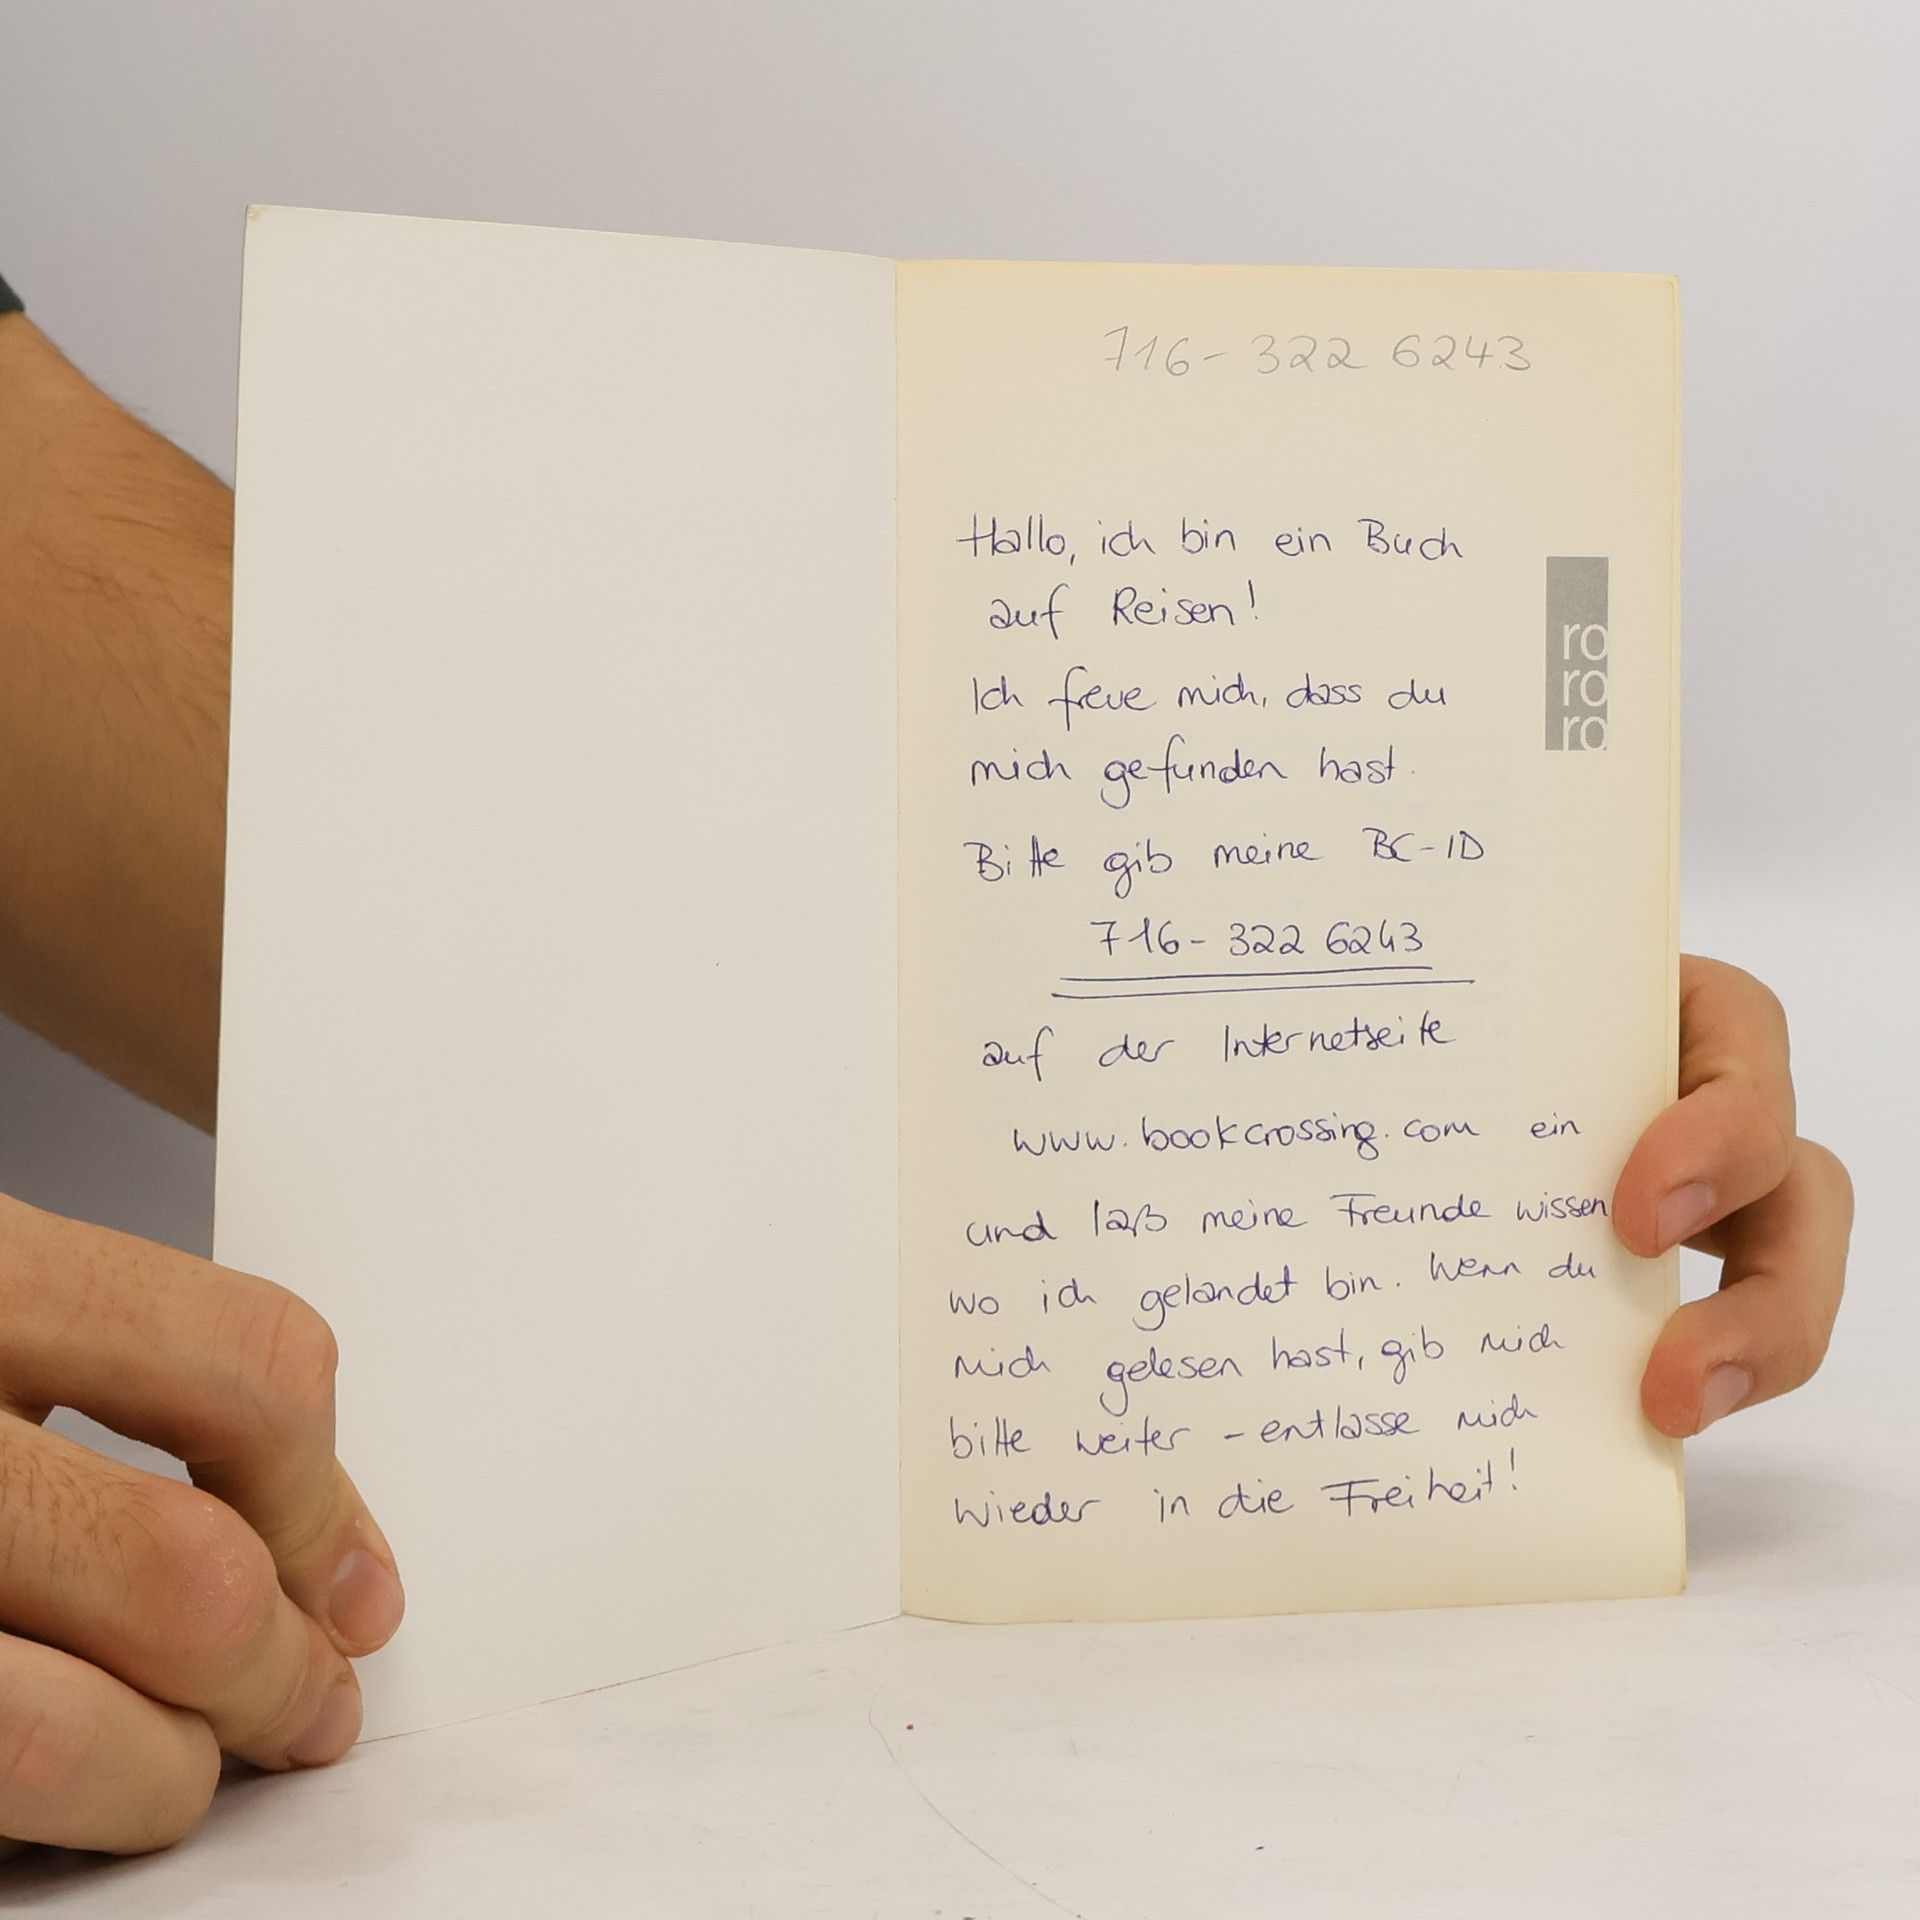 716-322 6243
Hallo, ich bin ein Buch
auf Reisen!
ro
ro
ro
Ich freue mich, dass du
mich gefunden hast.
Bitte gib meine BC-ID
716-322 6243
auf der Internetseite
www.bookcrossing.com ein
und laß meine Freunde wissen
wo ich gelandet bin. Wenn du
mich gelesen hast, gib mich
bitte weiter - entlasse mich
wieder in die Freiheit!